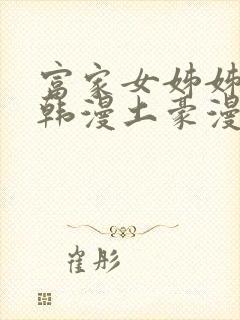 富家女姊姊
韩漫土豪漫
崔彤